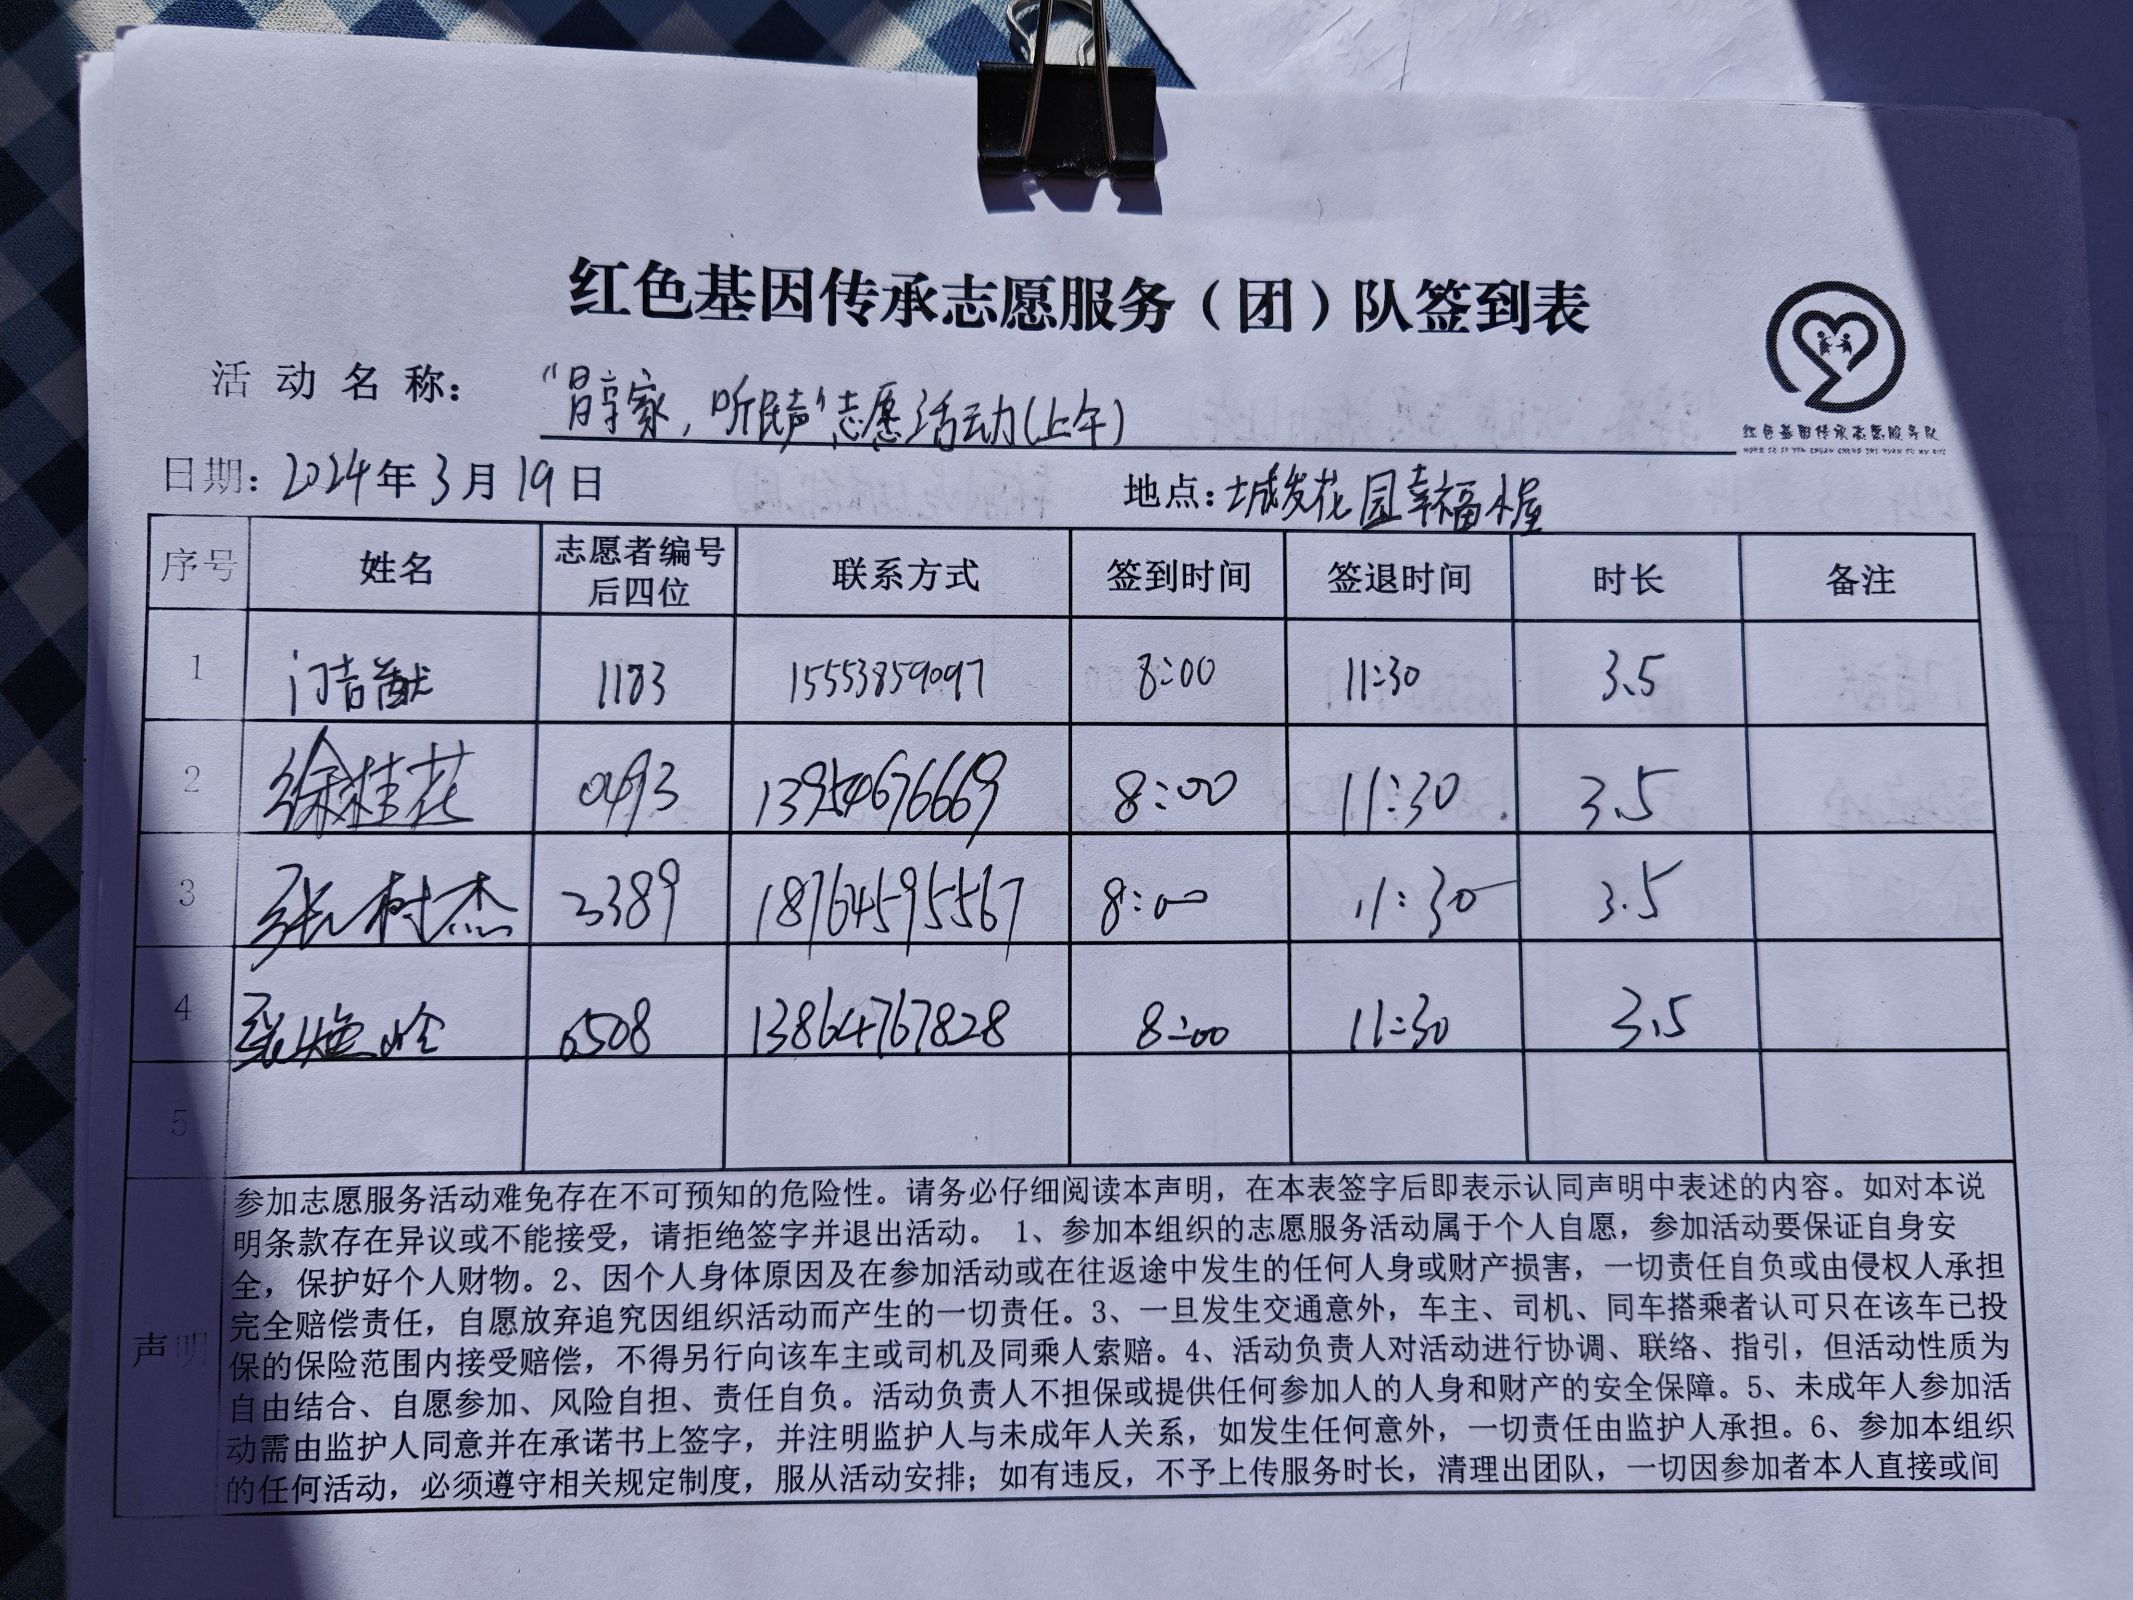 红色基因传承志愿服务（团）队签到表
红色基因传承志愿服务队
活动名称： 家，听民声"志愿活动(上午)
日期：2024年3月19日 地点：城发花园幸福小屋
序号 姓名 志愿者编号后四位 联系方式 签到时间 签退时间 时长 备注
1 1183 15553859097 8:00 11:30 3.5
2 徐桂花 0493 13954676669 8:00 11:30 3.5
3 张树杰 3389 18764595567 8:00 11:30 3.5
4 张 6508 13864767828 8:00 11:30 3.5
5
声明
参加志愿服务活动难免存在不可预知的危险性。请务必仔细阅读本声明，在本表签字后即表示认同声明中表述的内容。如对本说
明条款存在异议或不能接受，请拒绝签字并退出活动。 1、参加本组织的志愿服务活动属于个人自愿，参加活动要保证自身安
全，保护好个人财物。2、因个人身体原因及在参加活动或在往返途中发生的任何人身或财产损害，一切责任自负或由侵权人承担
完全赔偿责任，自愿放弃追究因组织活动而产生的一切责任。3、一旦发生交通意外，车主、司机、同车搭乘者认可只在该车已投
保的保险范围内接受赔偿，不得另行向该车主或司机及同乘人索赔。4、活动负责人对活动进行协调、联络、指引，但活动性质为
自由结合、自愿参加、风险自担、责任自负。活动负责人不担保或提供任何参加人的人身和财产的安全保障。5、未成年人参加活
动需由监护人同意并在承诺书上签字，并注明监护人与未成年人关系，如发生任何意外，一切责任由监护人承担。6、参加本组织
的任何活动，必须遵守相关规定制度，服从活动安排；如有违反，不予上传服务时长，清理出团队，一切因参加者本人直接或间